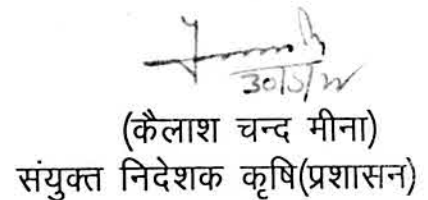 (कैलाश चन्द मीना)
संयुक्त निदेशक कृषि(प्रशासन)